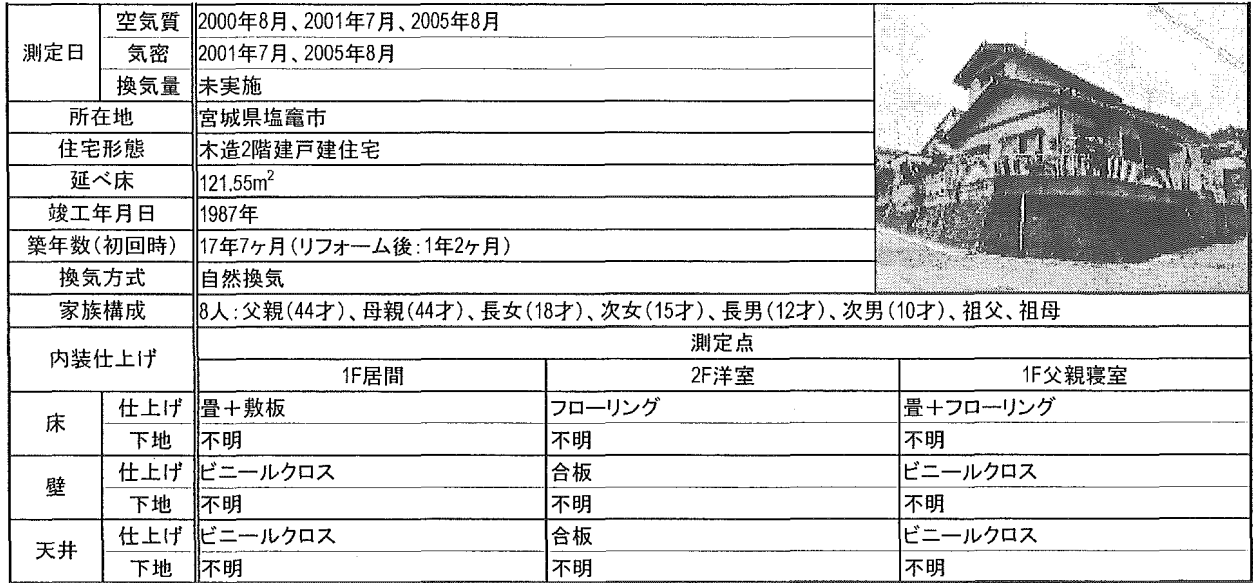 測定日 空気質 2000年8月、2001年7月、2005年8月
気密 2001年7月、2005年8月
換気量 未実施
所在地 宮城県塩竈市
住宅形態 木造2階建戸建住宅
延べ床 121.55m²
竣工年月日 1987年
築年数(初回時) 17年7ヶ月(リフォーム後:1年2ヶ月)
換気方式 自然換気
家族構成 8人:父親(44才)、母親(44才)、長女(18才)、次女(15才)、長男(12才)、次男(10才)、祖父、祖母
内装仕上げ 測定点
1F居間 2F洋室 1F父親寝室
床 仕上げ 畳+敷板 フローリング 畳+フローリング
下地 不明 不明 不明
壁 仕上げ ビニールクロス 合板 ビニールクロス
下地 不明 不明 不明
天井 仕上げ ビニールクロス 合板 ビニールクロス
下地 不明 不明 不明